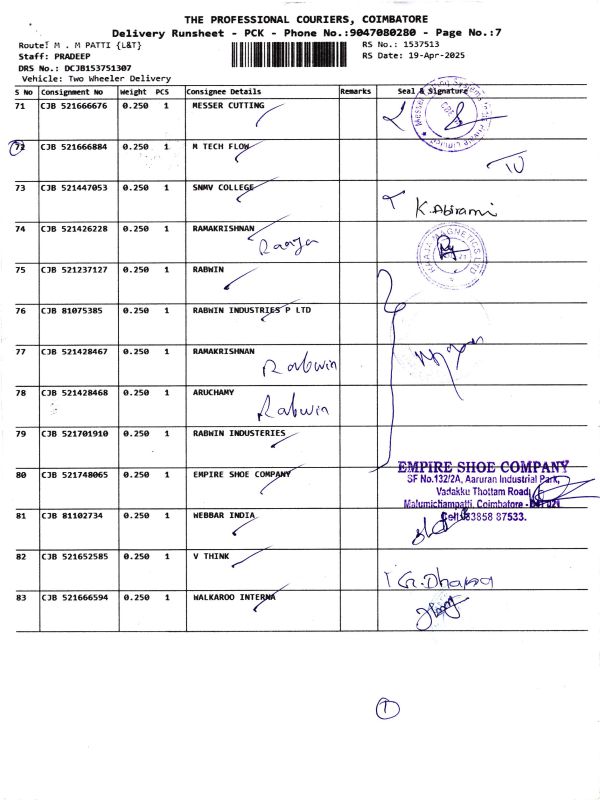 THE PROFESSIONAL COURIERS, COIMBATORE
Delivery Runsheet - PCK - Phone No.:9047080280 - Page No.:7
Route: M . M PATTI {L&T}
RS No.: 1537513
Staff: PRADEEP
RS Date: 19-Apr-2025
DRS No.: DCJB153751307
Vehicle: Two Wheeler Delivery
S No Consignment No Weight PCS Consignee Details Remarks Seal & Signature
71 CJB 521666676 0.250 1 MESSER CUTTING
72 CJB 521666884 0.250 1 M TECH FLOW
73 CJB 521447053 0.250 1 SNMV COLLEGE K. Abirami
74 CJB 521426228 0.250 1 RAMAKRISHNAN
Raaja
RAAJA MAGNETICS LTD
75 CJB 521237127 0.250 1 RABWIN
76 CJB 81075385 0.250 1 RABWIN INDUSTRIES P LTD
77 CJB 521428467 0.250 1 RAMAKRISHNAN
Rabwin
78 CJB 521428468 0.250 1 ARUCHAMY
Rabwin
79 CJB 521701910 0.250 1 RABWIN INDUSTERIES
80 CJB 521748065 0.250 1 EMPIRE SHOE COMPANY
EMPIRE SHOE COMPANY
SF No.132/2A, Aaruran Industrial Park,
Vadakku Thottam Road,
Malumichampatti, Coimbatore -
81 CJB 81102734 0.250 1 WEBBAR INDIA
Cell: 87533.
82 CJB 521652585 0.250 1 V THINK
G. Dharsa
83 CJB 521666594 0.250 1 WALKAROO INTERNA
1